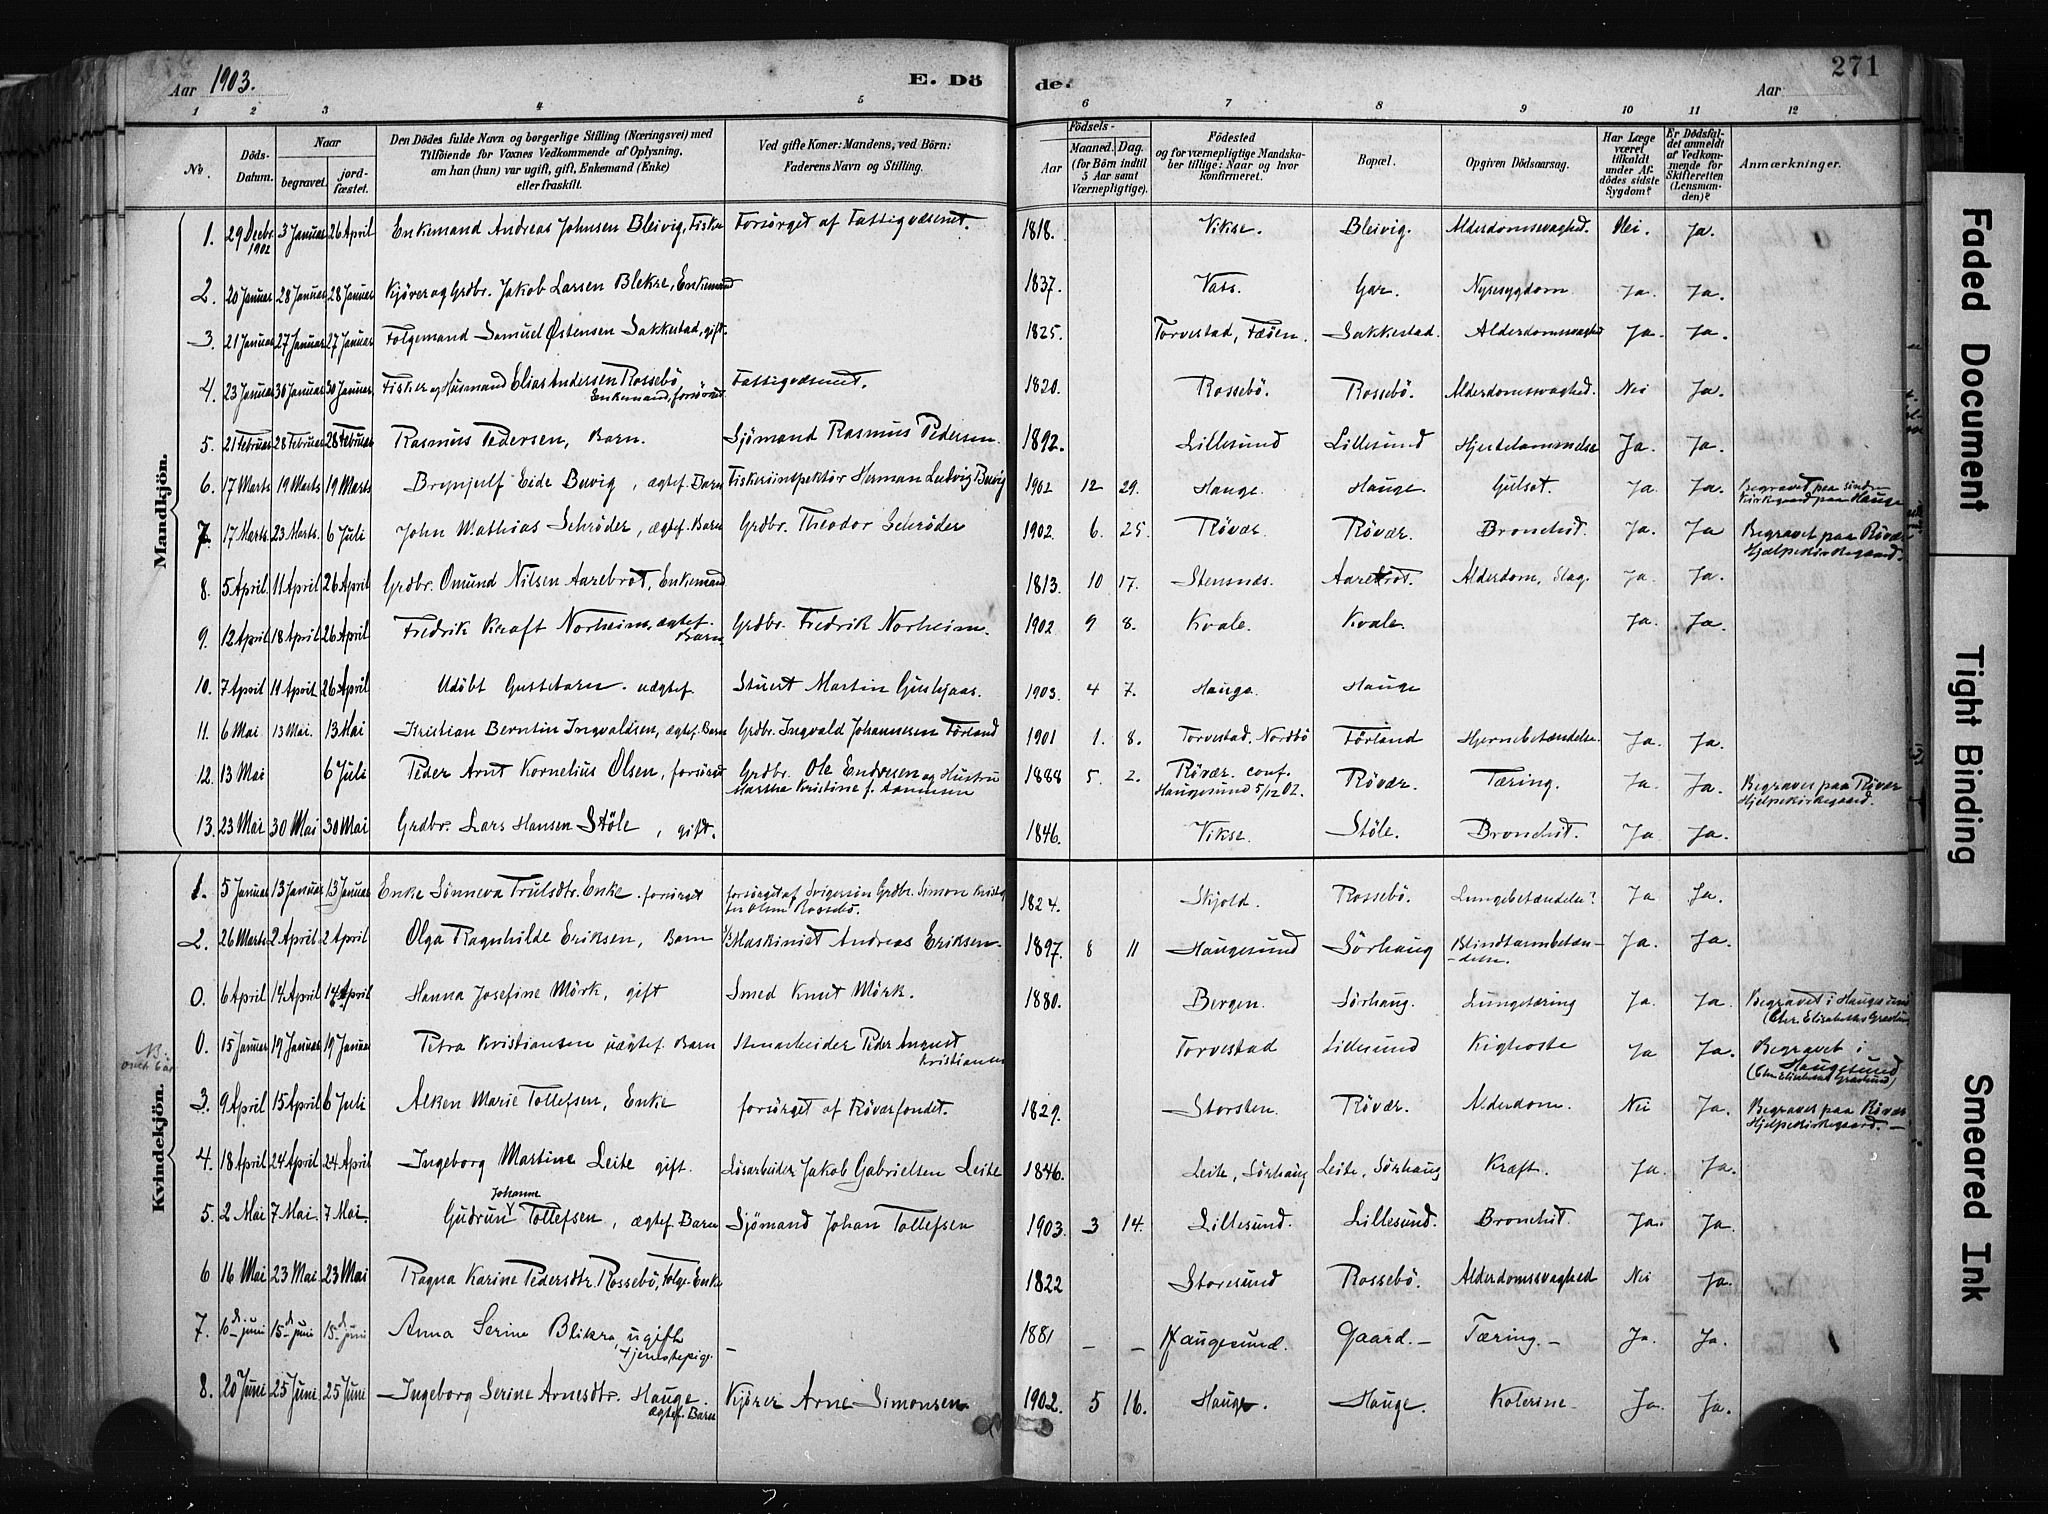 Aar 1903. E. Döde. Aar 271
1 2 3 4 5 6 7 8 9 10 11 12
No. Döds-Datum. Naar begravet. jordfæstet. Den Dödes fulde Navn og borgerlige Stilling (Næringsvei) med Tilföiende for Voxnes Vedkommende af Oplysning, om han (hun) var ugift, gift, Enkemand (Enke) eller fraskilt. Ved gifte Koner: Mandens, ved Börn: Faderens Navn og Stilling. Födsels- Aar Maaned. Dag. (for Börn indtil 5 Aar samt Værnepligtige). Födested og for værnepligtige Mandskaber tillige: Naar og hvor konfirmeret. Bopæl. Opgiven Dödsaarsag. Har Læge været tilkaldt under Afdödes sidste Sygdom? Er Dödsfaldet anmeldt af Vedkommende for Skifteretten (Lensmanden)? Anmærkninger.
Mandkjön.
1. 29 Decbr. 1902 3 Januar 26 April Enkemand Andreas Johnsen Bleivig, Fisker Forsörget af Fattigvæsenet. 1818. Vikse. Bleivig. Alderdomssvaghed. Nei. Ja.
2. 20 Januar 28 Januar 28 Januar Kjører og Grdbr. Jakob Larsen Blekse, Enkemand 1837. Vats. Gar. Nyresygdom Ja. Ja.
3. 21 Januar 27 Januar 27 Januar Folgemand Samuel Østensen Sakkestad, gift. 1825. Torvestad, Fæöen. Sakkestad. Alderdomssvaghed Ja. Ja.
4. 23 Januar 30 Januar 30 Januar Fisker og Husmand Elias Andersen Rossebö, Enkemand, forsörget Fattigvæsenet. 1820. Rossebö. Rossebö. Alderdomssvaghed. Nei Ja.
5. 21 Februar 28 Februar 28 Februar Rasmus Pedersen, Barn. Sjömand Rasmus Pedersen. 1892. Lillesund Lillesund Hjertelammelse Ja. Ja.
6. 17 Marts 19 Marts 19 Marts Brynjulf Eide Buvig, ægtef. Barn Fiskeriinspektör Herman Ludvig Buvig 1902 12 29. Hauge. Hauge. Gulsot. Ja. Ja. Begravet paa Kirkegaard paa Hauge
7. 17 Marts. 23 Marts. 6 Juli John Mathias Schrøder, ægtef. Barn Grdbr. Theodor Schrøder 1902. 6. 25. Rövær. Rövær. Bronchit. Ja. Ja Begravet paa Rövær Hjælpekirkegaard.
8. 5 April. 11 April 26 April Grdbr. Omund Nilsen Aarebrot, Enkemand 1813. 10 17. Stensnæs. Aarebrot. Alderdom, Slag. Ja. Ja.
9. 12 April 18 April 26 April Fredrik Kraft Norheim, ægtef. Barn Grdbr. Fredrik Norheim. 1902 9 8. Kvale. Kvale. Ja. Ja.
10. 7 April 11 April 26 April Udöbt Guttebarn. uægtef. Stuert Martin 1903. 4 7. Hauge. Hauge
11. 6 Mai 13 Mai. 13 Mai Kristian Berntin Ingvaldsen, ægtef. Barn Grdbr. Ingvald Johannesen Förland 1901 1. 8. Torvestad, Nordbö Förland Hjernebetændelse. Ja. Ja.
12. 13 Mai 6 Juli Peder Arnt Kornelius Olsen, forsörget Grdbr. Ole Endresen og Hustru Martha Kristine 1888 5. 2. Rövær. conf. Haugesund 5/12 02. Rövær. Tæring. Ja. Ja. Begravet paa Rövær Hjelpekirkegaard.
13. 23 Mai 30 Mai 30 Mai Grdbr. Lars Hansen Stöle, gift. 1846. Vikse. Stöle. Bronchit. Ja. Ja.
Kvindekjön.
1. 5 Januar 13 Januar 13 Januar Enke Sönneva Trulsdtr. Enke. forsörget forsörget af Svigersön Grdbr. Simon Kristoffer Olsen Rossebö. 1824. Skjold. Rossebö. Lungebetændelse? Ja Ja.
2. 26 Marts 2 April 2 April Olga Ragnhilde Eriksen, Barn Maskinist Andreas Eriksen. 1897. 8 11 Haugesund Sörhaug Blindtarmbetændelse. Ja. Ja.
0. 6 April 14 April 14 April Hanna Josefine Mörk, gift Smed Knut Mörk. 1880. Bergen. Sörhaug. Lungetæring Ja. Ja. Begravet i Haugesund (Chr. Elisabeths Gravlund)
0. 15 Januar 19 Januar 19 Januar Petra Kristiansen uægtef. Barn Stenarbeider Peder August Kristiansen Torvestad Lillesund Kighoste Ja Ja. Begravet i Haugesund (Chr. Elisabeths Gravlund)
3. 9 April 15 April 6 Juli Alken Marie Tollefsen, Enke forsörget af Röværfondet. 1829. Storsten. Rövær. Alderdom. Nei Ja. Begravet paa Rövær Hjelpekirkegaard.
4. 18 April 24 April 24 April Ingeborg Martine Leite gift. Lösarbeider Jakob Gabrielsen Leite 1846. Leite, Sörhaug Leite, Sörhaug Kræft. Ja. Ja.
5. 2 Mai 7 Mai 7 Mai. Gudrun Johanne Tollefsen, ægtef. Barn Sjömand Johan Tollefsen 1903. 3 14. Lillesund. Lillesund. Bronchit. Ja. Ja.
6 16 Mai 23 Mai 23 Mai Ragna Karine Pedersdtr. Rossebö, Folge-Enke 1822 Storesund Rossebö. Alderdomssvaghed Nei Ja.
7. 15de juni 15de juni Anna Serine Blikra, ugift tjenestepige. – 1881 – – Haugesund. Gaard. – Tæring. – Ja. Ja.
8. 20 Juni 25 Juni 25 Juni Ingeborg Serine Arnesdtr. Hauge. ægtef. Barn Kjörer Arne Simonsen 1902. 5 16. Hauge. Hauge. Kolerine. Ja. Ja.
Faded Document
Tight Binding
Smeared Ink